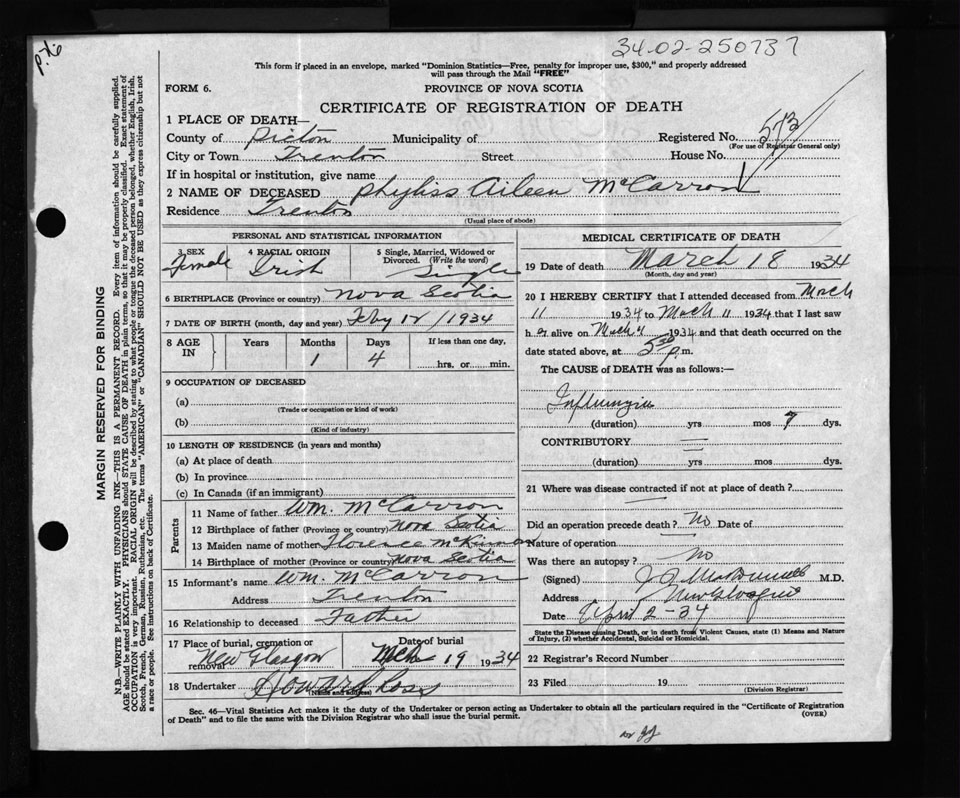 34-02-250737
This form if placed in an envelope, marked "Dominion Statistics—Free, penalty for improper use, $300," and properly addressed
will pass through the Mail "FREE"
FORM 6. PROVINCE OF NOVA SCOTIA
CERTIFICATE OF REGISTRATION OF DEATH
1 PLACE OF DEATH—
County of Pictou Municipality of Registered No. 573
(For use of Registrar General only)
City or Town Trenton Street House No.
If in hospital or institution, give name
2 NAME OF DECEASED Phyliss Aileen McCarron
Residence Trenton
(Usual place of abode)
PERSONAL AND STATISTICAL INFORMATION
3 SEX Female 4 RACIAL ORIGIN Irish 5 Single, Married, Widowed or Divorced. (Write the word) Single
6 BIRTHPLACE (Province or country) Nova Scotia
7 DATE OF BIRTH (month, day and year) Feby 12/1934
8 AGE IN Years Months 1 Days 4 If less than one day, hrs. or min.
9 OCCUPATION OF DECEASED
(a)
(Trade or occupation or kind of work)
(b)
(Kind of industry)
10 LENGTH OF RESIDENCE (in years and months)
(a) At place of death
(b) In province
(c) In Canada (if an immigrant)
Parents
11 Name of father Wm. McCarron
12 Birthplace of father (Province or country) Nova Scotia
13 Maiden name of mother Florence
14 Birthplace of mother (Province or country) Nova Scotia
15 Informant's name Wm. McCarron
Address Trenton
16 Relationship to deceased Father
17 Place of burial, cremation or removal New Glasgow Date of burial Mch 19 1934
18 Undertaker Howard Ross
(Name and address)
MEDICAL CERTIFICATE OF DEATH
19 Date of death March 18 1934
(Month, day and year)
20 I HEREBY CERTIFY that I attended deceased from March
11 1934 to March 11 1934 that I last saw
h er alive on March 11 1934 and that death occurred on the
date stated above, at 5 30 p.m.
The CAUSE of DEATH was as follows:—
(duration) yrs mos 7 dys.
CONTRIBUTORY
(duration) yrs mos dys.
21 Where was disease contracted if not at place of death?
Did an operation precede death? No Date of
Nature of operation
Was there an autopsy? No
(Signed) M.D.
Address New Glasgow
Date April 2-34
State the Disease causing Death, or in death from Violent Causes, state (1) Means and Nature
of Injury, (2) whether Accidental, Suicidal or Homicidal.
22 Registrar's Record Number
23 Filed 19
(Division Registrar)
Sec. 46—Vital Statistics Act makes it the duty of the Undertaker or person acting as Undertaker to obtain all the particulars required in the "Certificate of Registration
of Death" and to file the same with the Division Registrar who shall issue the burial permit. (OVER)
MARGIN RESERVED FOR BINDING
N.B.—WRITE PLAINLY WITH UNFADING INK—THIS IS A PERMANENT RECORD. Every item of information should be carefully supplied.
AGE should be stated EXACTLY. PHYSICIANS should STATE CAUSE OF DEATH in plain terms, so that it may be properly classified. Exact statement of
OCCUPATION is very important. RACIAL ORIGIN will be described by stating to what people or tongue the deceased person belonged, whether English, Irish,
Scotch, French, German, Russian, Ruthenian, etc. The terms "AMERICAN" or "CANADIAN" SHOULD NOT BE USED as they express citizenship but not
a race or people. See instructions on back of Certificate.